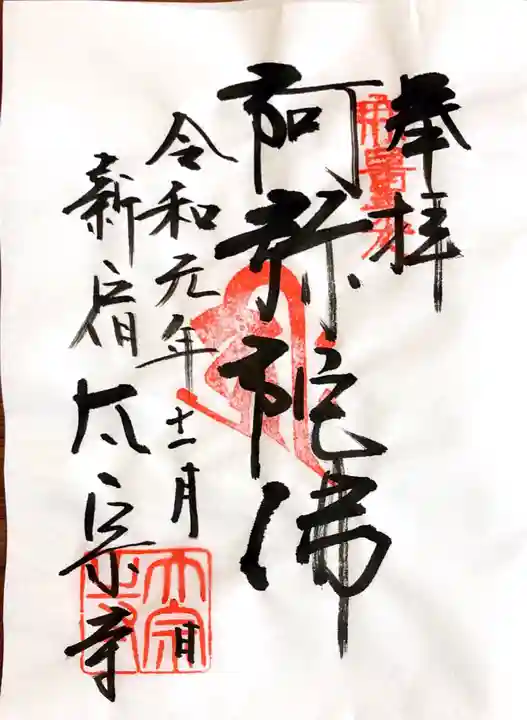 奉拝
阿弥陀佛
令和元年十一月 日
新宿 太宗寺